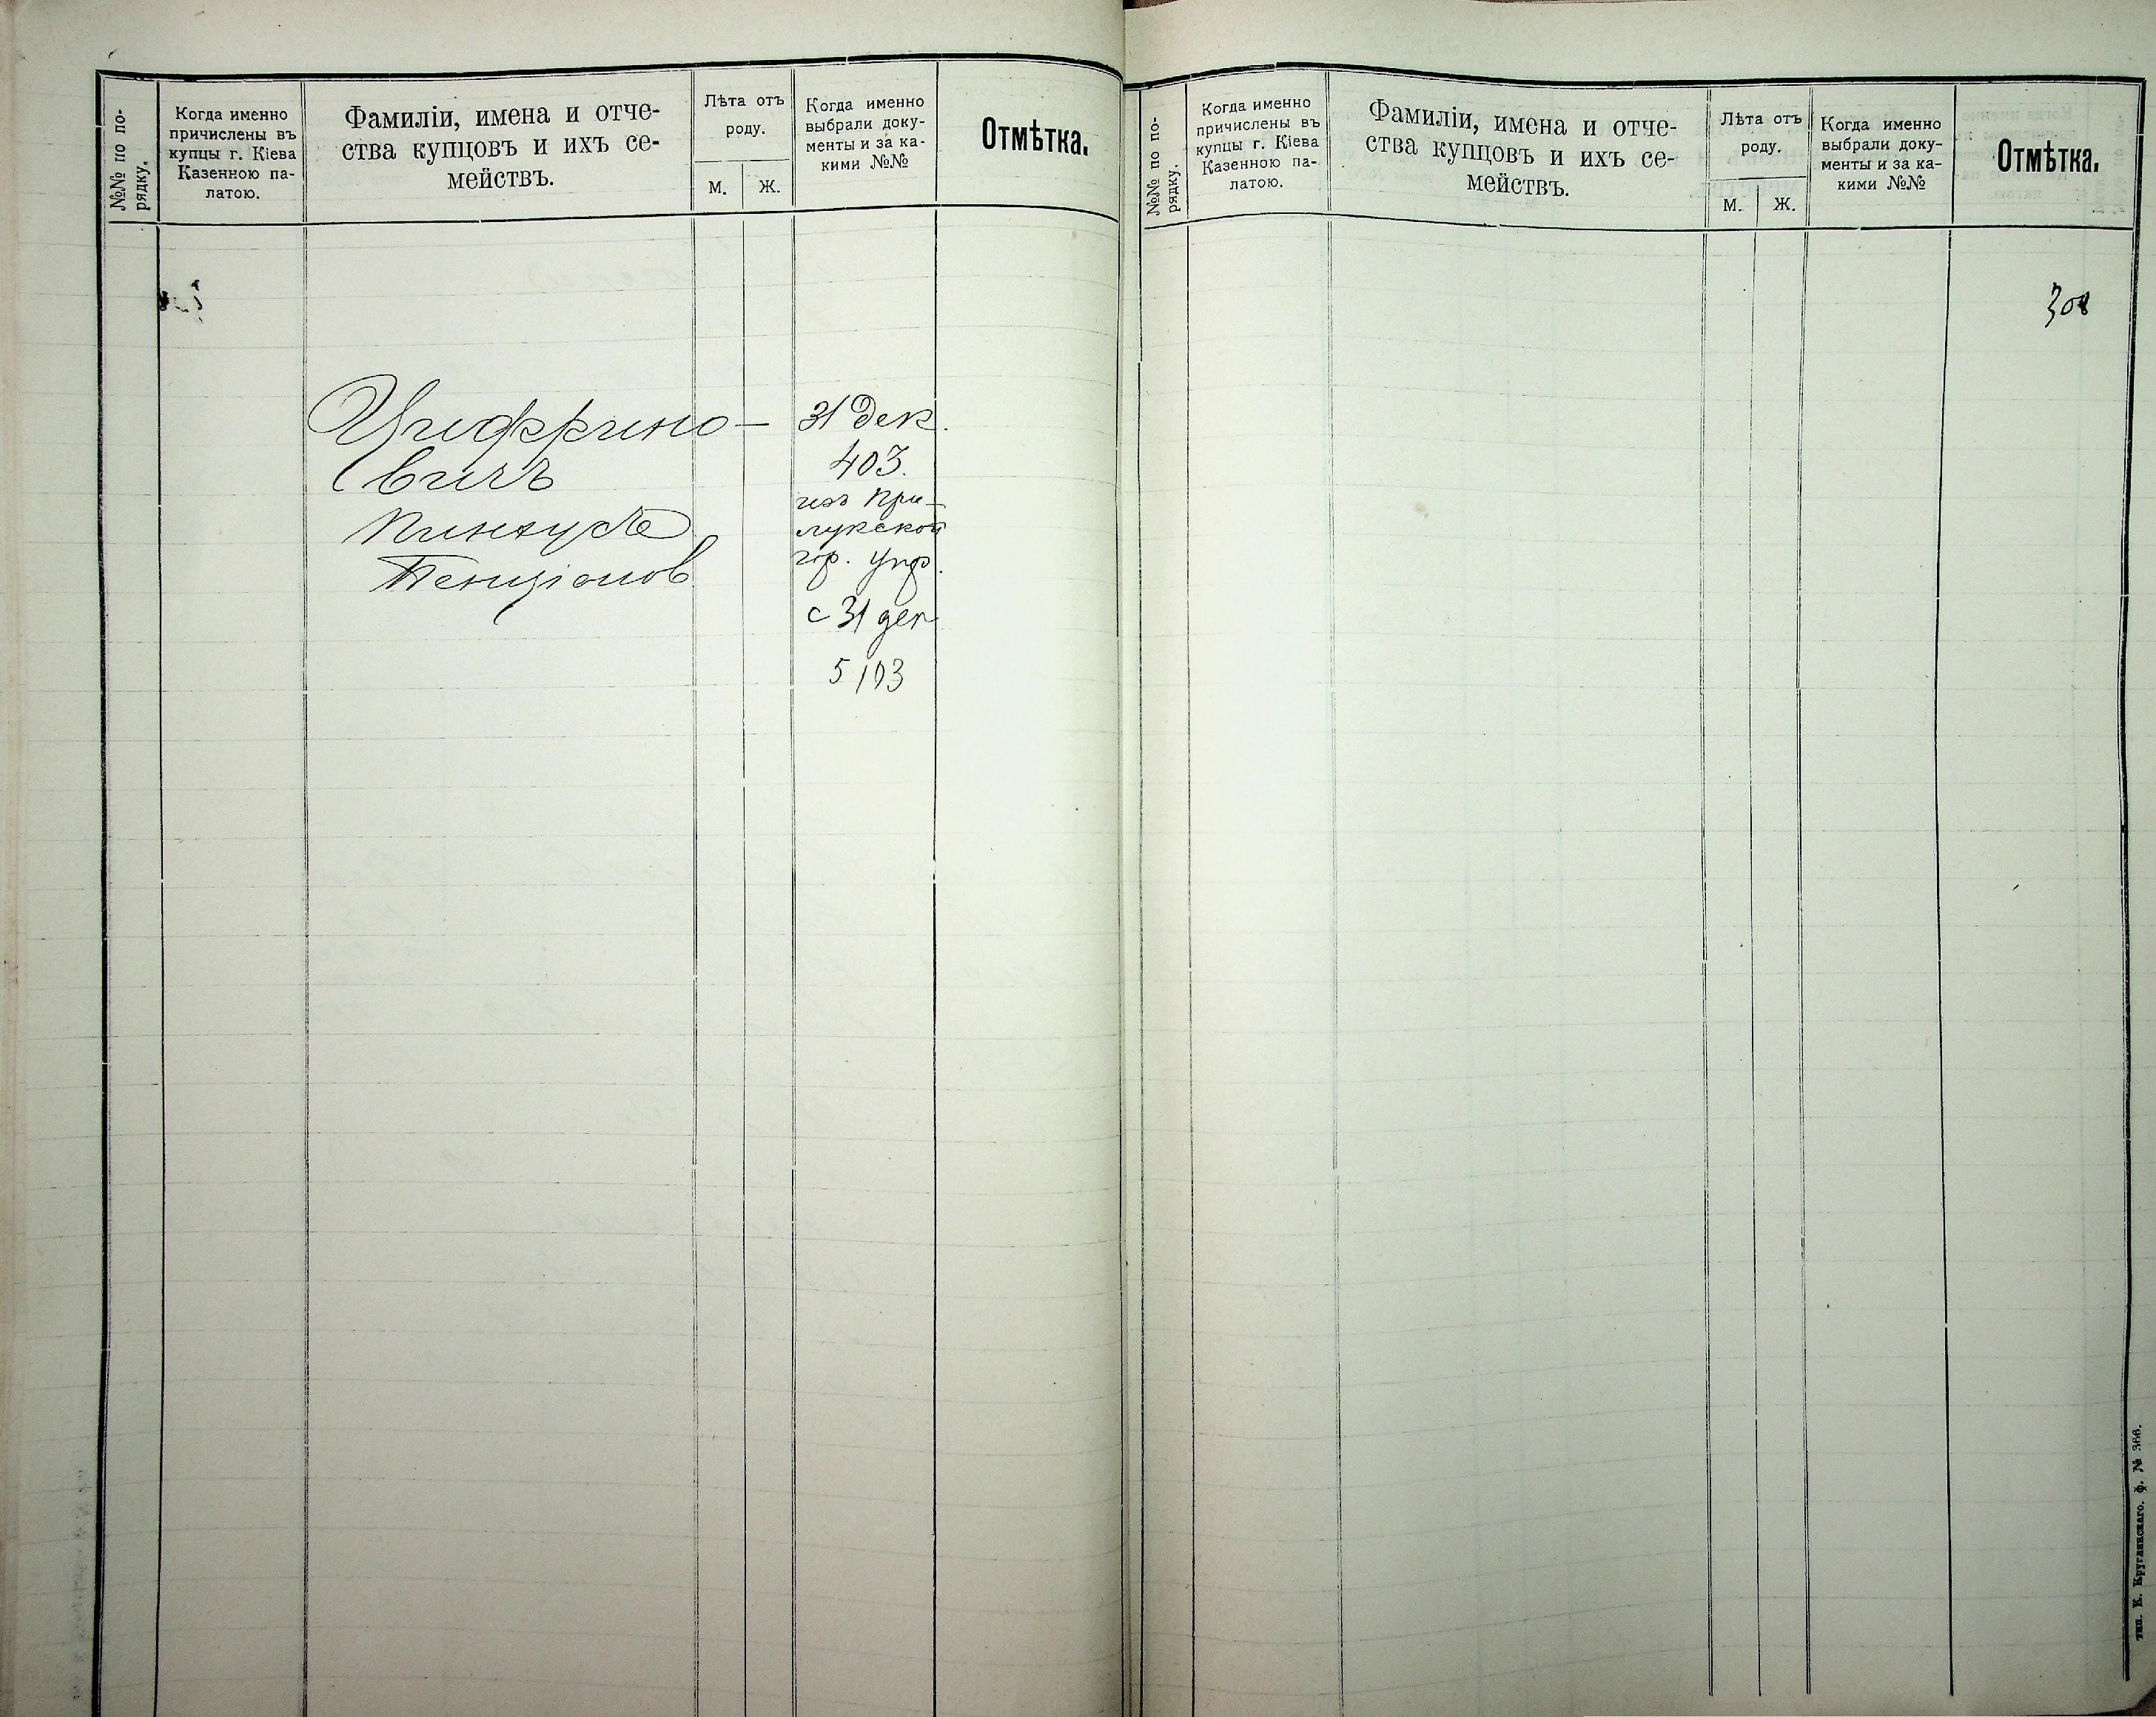 №№ по по-
рядку.
Когда именно
причислены въ
купцы г. Кіева
Казенною па-
латою.
Фамиліи, имена и отче-
ства купцовъ и ихъ се-
мействъ.
Лѣта отъ
роду.
М.
Ж.
Когда именно
выбрали доку-
менты и за ка-
кими №№
Отмѣтка.
Цифрино-
вичъ
Пинхусъ
Бенціонов
31 Дек.
403.
изъ При-
лукской
гор. Упр.
с 31 дек
5103
№№ по по-
рядку.
Когда именно
причислены въ
купцы г. Кіева
Казенною па-
латою.
Фамиліи, имена и отче-
ства купцовъ и ихъ се-
мействъ.
Лѣта отъ
роду.
М.
Ж.
Когда именно
выбрали доку-
менты и за ка-
кими №№
Отмѣтка.
308
тип. К. Круглянскаго. ф. № 366.